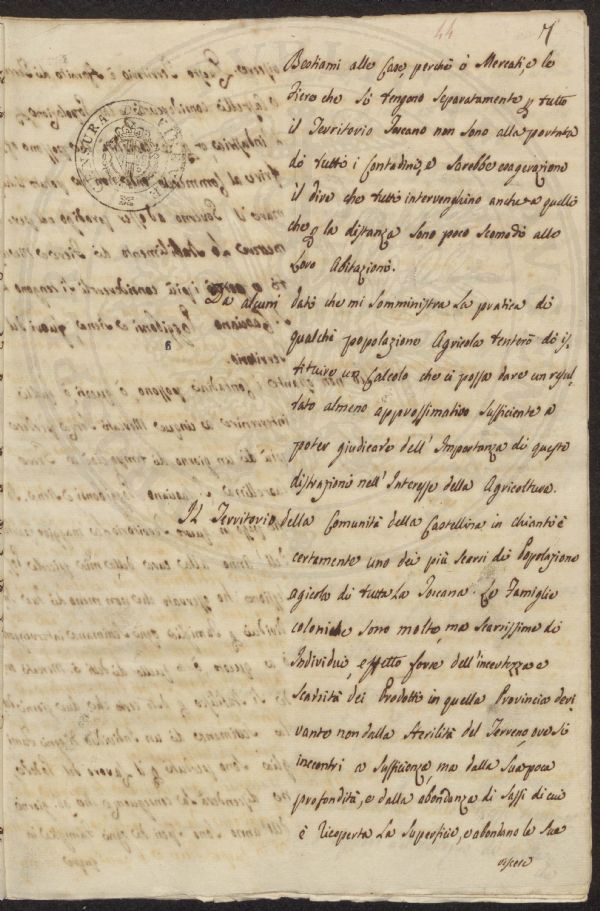 44 7
Bestiami alle Case, perchè i Mercati, e le
Fiere che si tengono separatamente p tutto
il Territorio Toscano non sono alla portata
di tutti i Contadini, e sarebbe esagerazione
il dire che tutti intervenghino anche a quelli
che p la distanza sono poco scomodi alle
Loro Abitazioni.
Da alcuni dati che mi somministra la pratica di
qualche popolazione Agricola tenterò di is-
tituire un Calcolo che ci possa dare un risul-
tato almeno approssimativo sufficiente a
poter giudicare dell' Importanza di queste
distrazioni nell' Interesse della Agricoltura.
Il Territorio della Comunità della Castellina in chianti è
certamente uno dei più scarsi di Popolazione
agricola di tutta La Toscana. Le Famiglie
coloniche sono molte, ma scarsissime di
Individui, effetto forse dell' incertezza e
scarsità dei Prodotti in quella Provincia deri-
vante non dalla sterilità del Terreno, ove si
incontri a sufficienza, ma dalla sua poca
profondità, e dalla abondanza di sassi di cui
è ricoperta La superficie, e abondano le sue
viscere